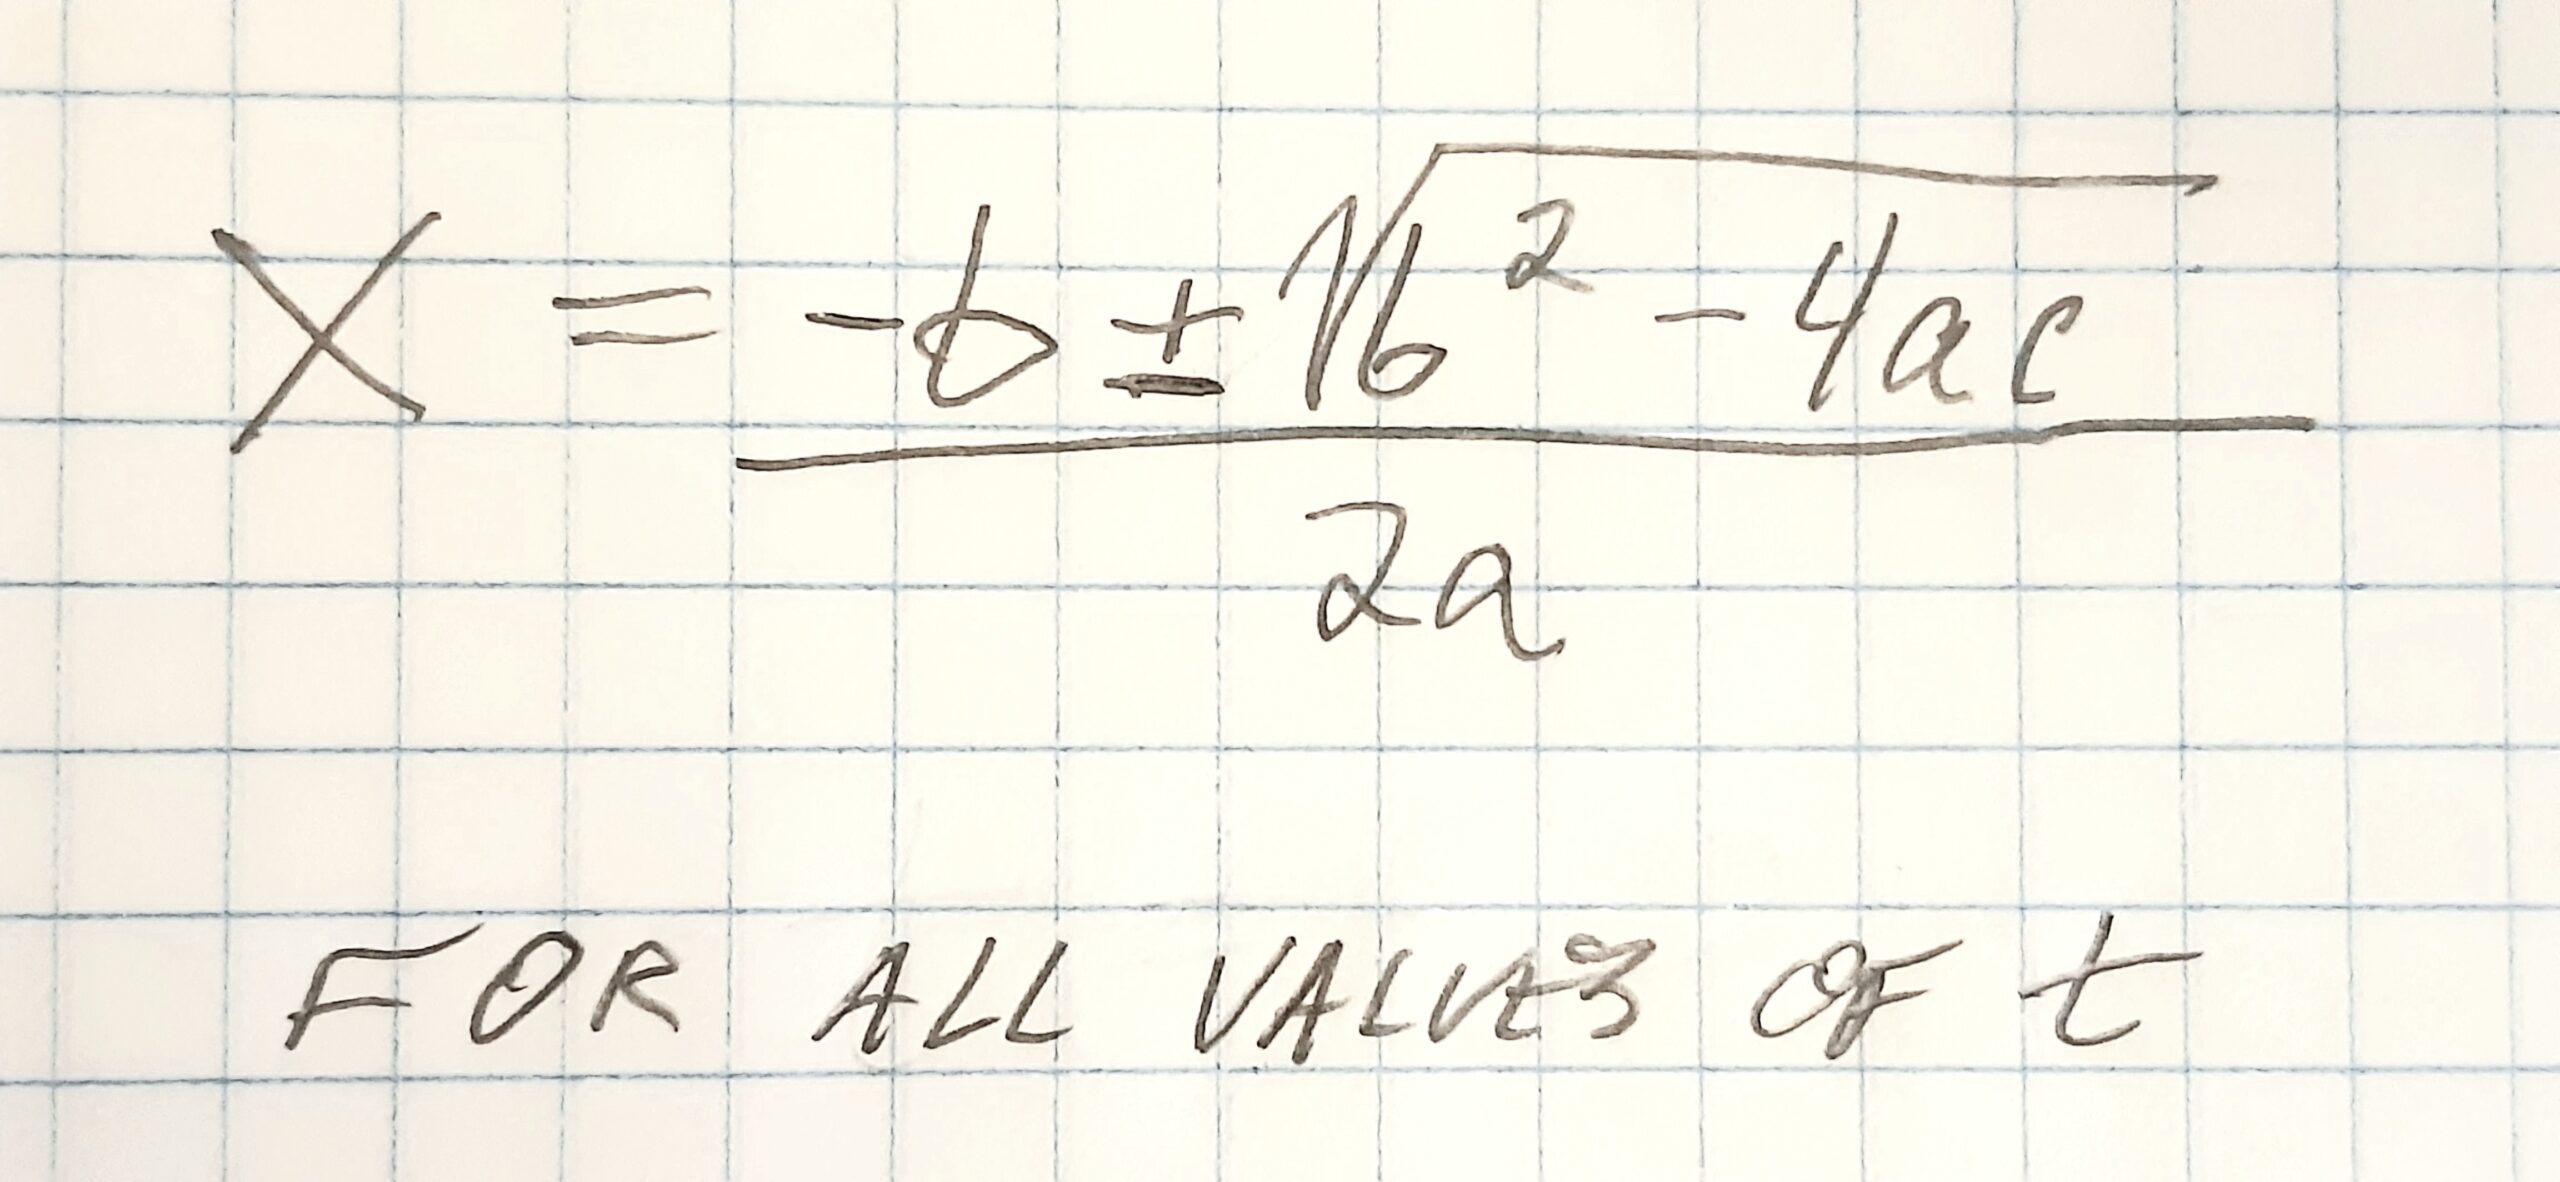 X = -b ± √b² - 4ac
2a
FOR ALL VALUES OF t